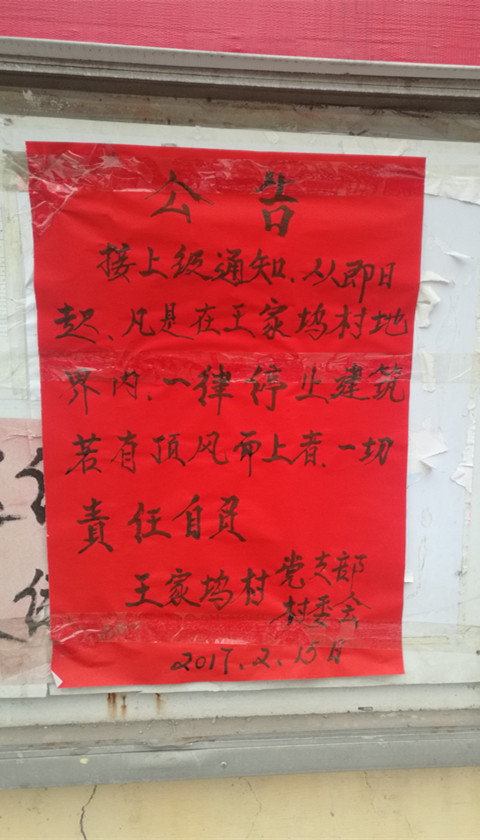 公告
接上级通知、从即日
起、凡是在王家坞村地
界内、一律停止建筑
若有顶风而上者、一切
责任自负
王家坞村党支部
村委会
2017.2.15日